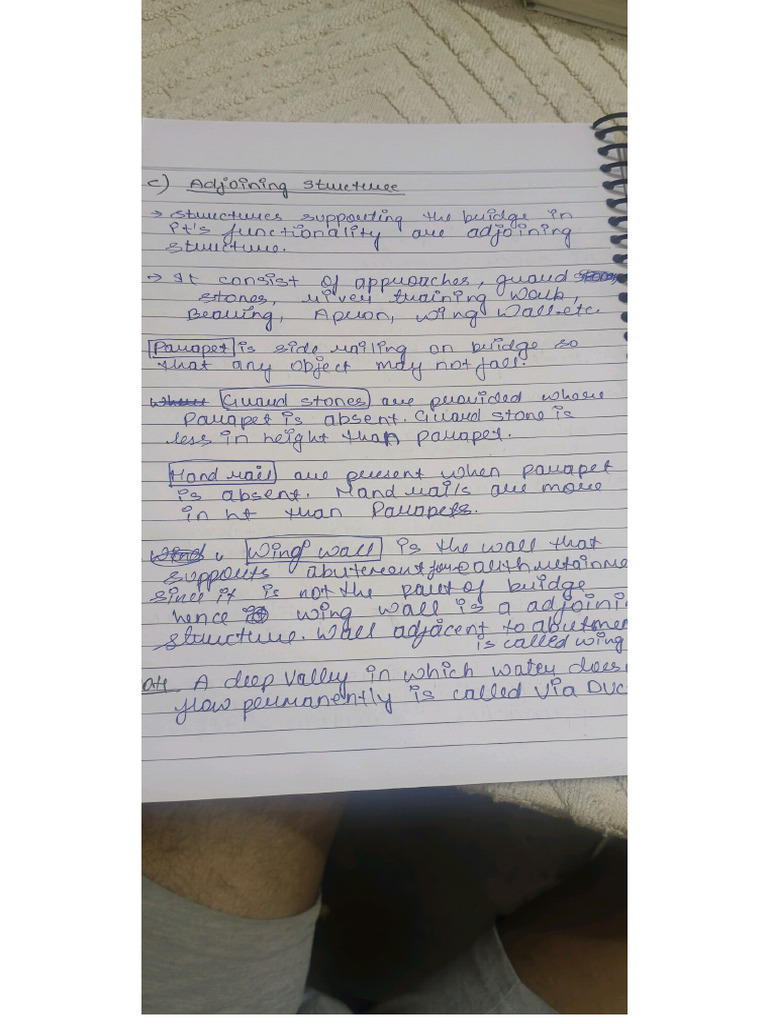 c) Adjoining Structure
→ Structures supporting the bridge in
it's functionality are adjoining
structure.
→ It consist of approaches, guard stones,
stones, river training work,
Bearing, Apron, wing wall etc.
Parapet is side railing on bridge so
that any object may not fall.
Where Guard stones are provided where
Parapet is absent. Guard stone is
less in height than parapet.
Hand rail are present when parapet
is absent. Hand rails are more
in ht than Parapets.
Wind Wing wall is the wall that
supports abutement for earth retainme
since it is not the part of bridge
hence is wing wall is a adjoini
structure. Wall adjacent to abutmen
is called wing
A deep valley in which water does
flow permanently is called Via Duc